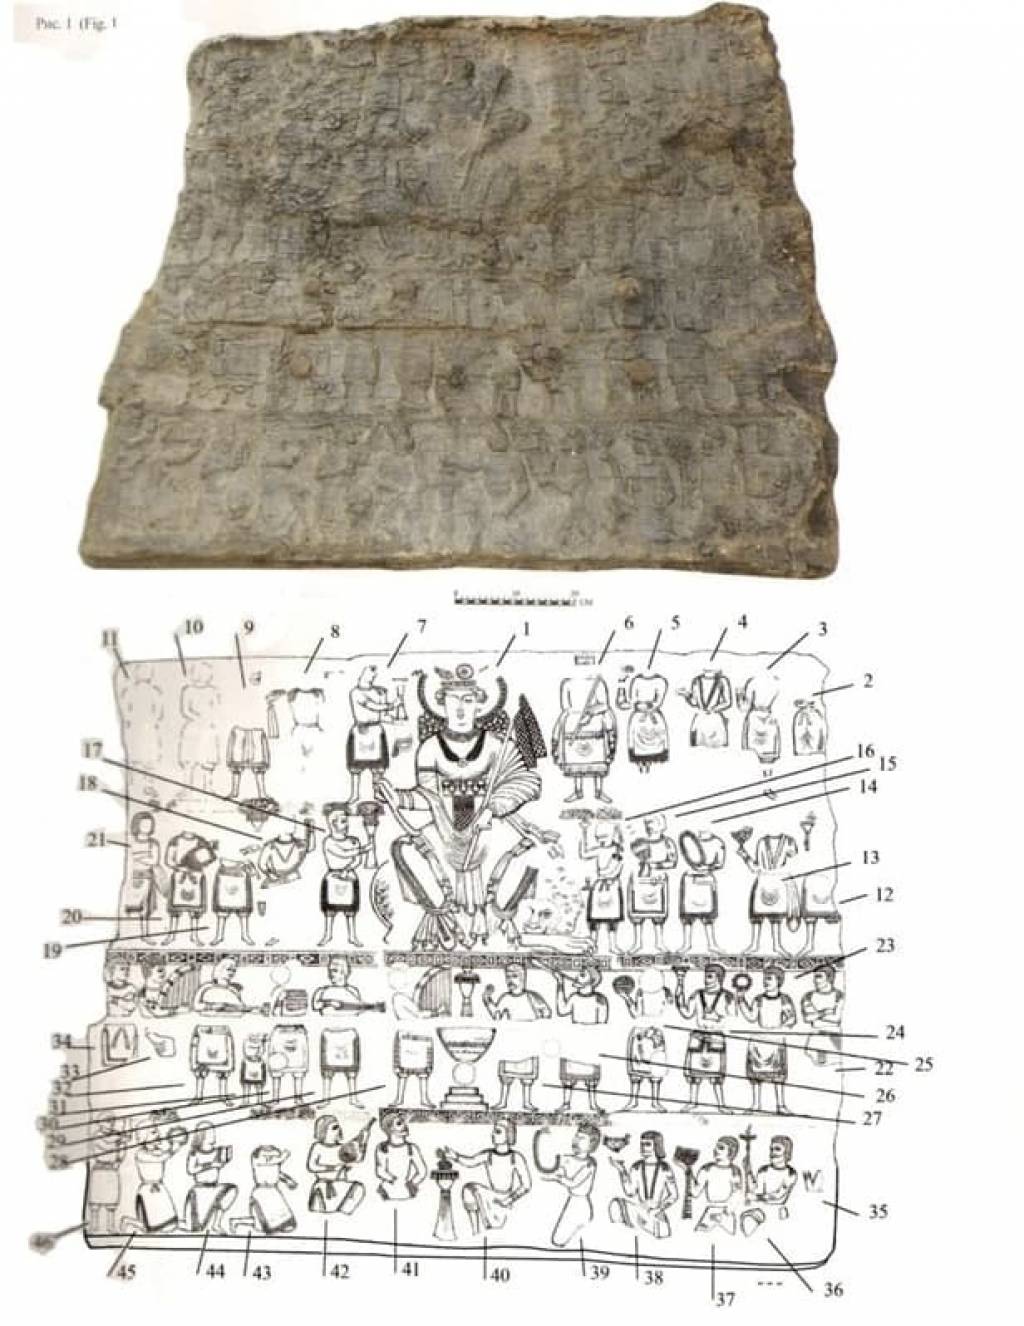 Рис. 1 (Fig. 1
11 10 9 8 7 1 6 5 4 3
2
17 16
18 15
14
21 13
20 12
19 23
34 24
33 25
32 22
31 26
30 27
29
28
35
46
45 44 43 42 41 40 39 38 36
37